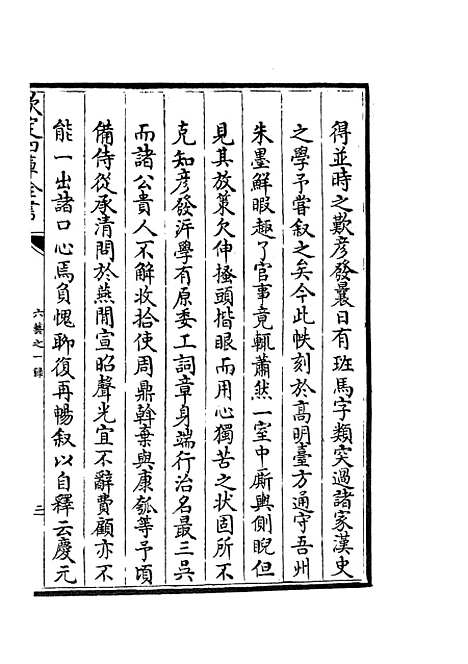 得並時之歎彦發曩日有班馬字類突過諸家漢史
之學予嘗叙之矣今此帙刻於高明臺方通守吾州
朱墨鮮暇趣了官事竟輒蕭然一室中厮輿側睨但
見其放策欠伸搔頭揩眼而用心獨苦之狀固所不
克知彦發泝學有原委工詞章身端行治名最三吳
而諸公貴人不解收拾使周鼎斡棄與康瓠等予頃
備侍從承清問於燕閒宣昭聲光宜不辭費顧亦不
能一出諸口心焉負愧聊復再暢叙以自釋云慶元
欽定四庫全書
六藝之一錄
二